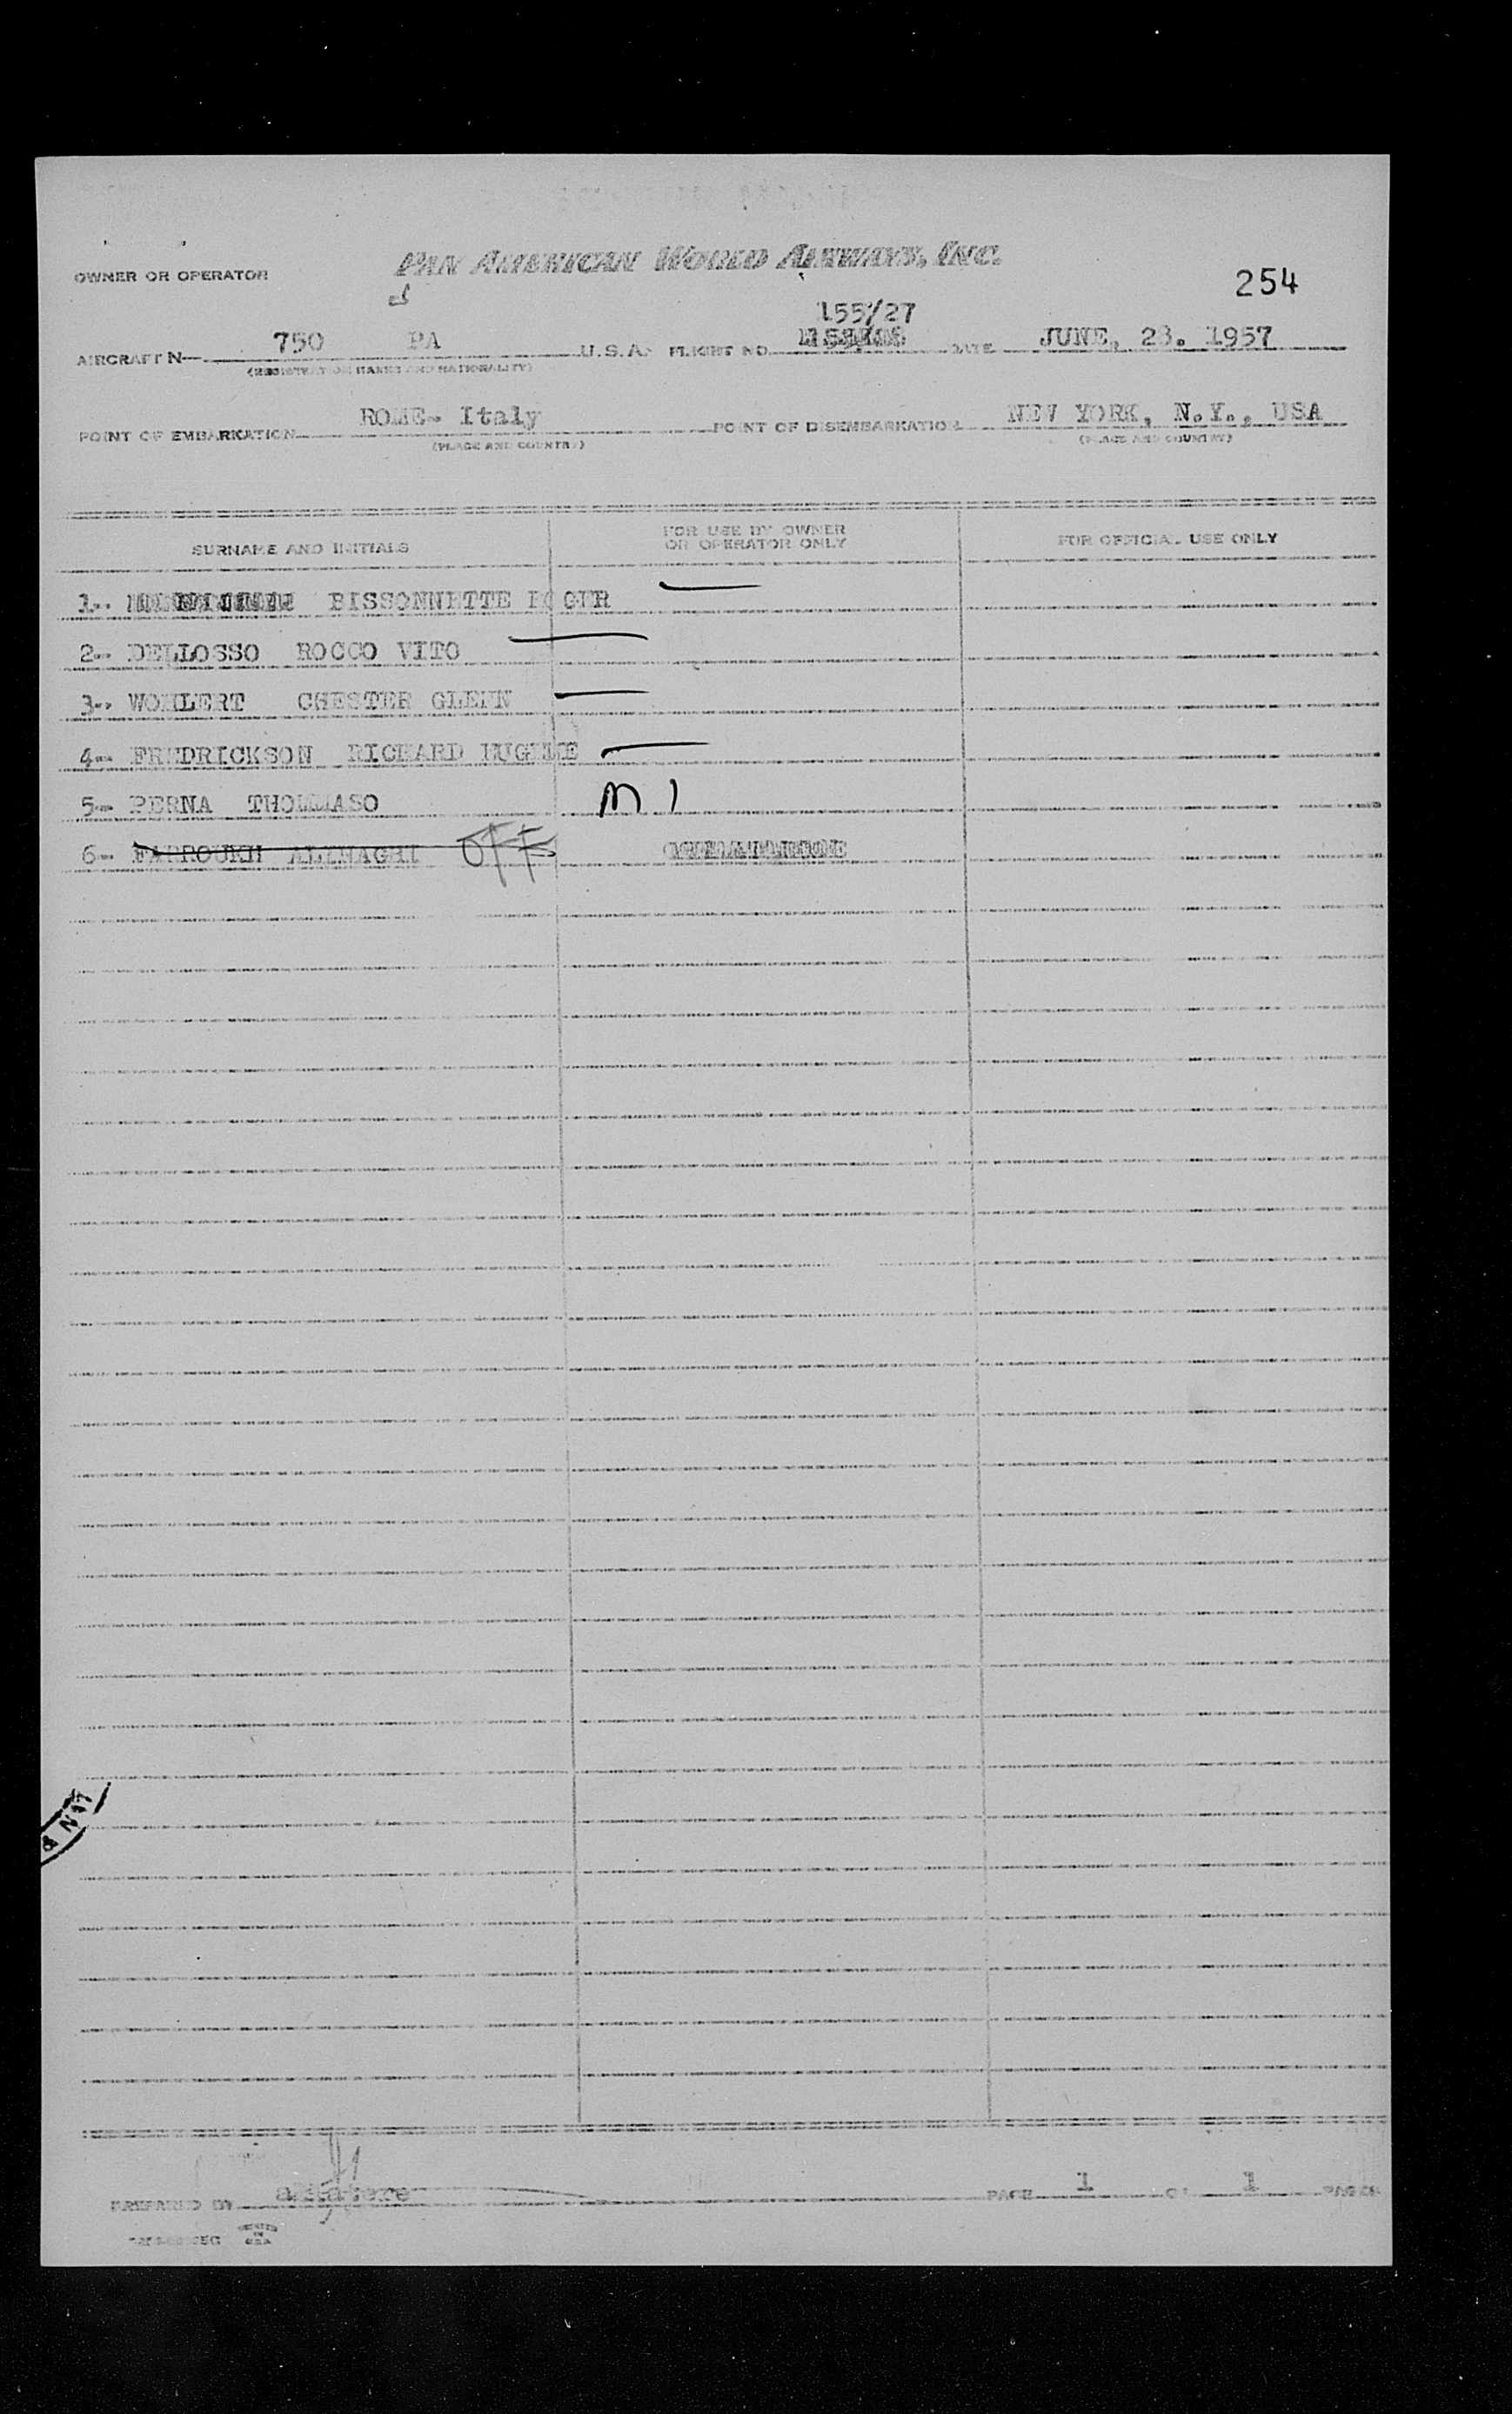 PAN AMERICAN WORLD AIRWAYS, INC.
OWNER OR OPERATOR
254
155/27
AIRCRAFT N— 750 PA U.S.A. FLIGHT NO. DATE JUNE, 23. 1957
(REGISTRATION MARKS AND NATIONALITY)
POINT OF EMBARKATION ROME- Italy POINT OF DISEMBARKATION NEW YORK, N.Y., USA
(PLACE AND COUNTRY) (PLACE AND COUNTRY)
SURNAME AND INITIALS FOR USE BY OWNER OR OPERATOR ONLY FOR OFFICIAL USE ONLY
1-- BISSONNETTE
2-- DELLOSSO ROCCO VITO
3-- WOHLERT CHESTER GLENN
4-- FREDRICKSON RICHARD
5-- PERNA THOMMASO M 1
6-- FARROUKH ALIMAGHI OFF
PREPARED BY PAGE 1 OF 1 PAGES
PRINTED IN U.S.A.